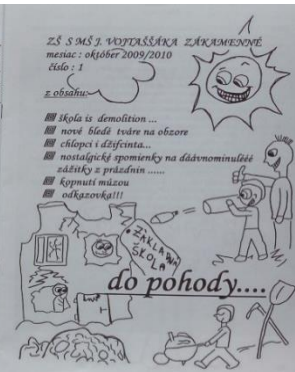 ZŠ S MŠ J. VOJTAŠŠÁKA ZÁKAMENNÉ
mesiac : október 2009/2010
číslo : 1
z obsahu:
škola is demolition ...
nové bledé tváre na obzore
chlopci i džifcinta...
nostalgické spomienky na dáávnominulééé
zážitky z prázdnin ......
kopnutí múzou
odkazovka!!!
ZÁKLADNÁ
ŠKOLA
do pohody....